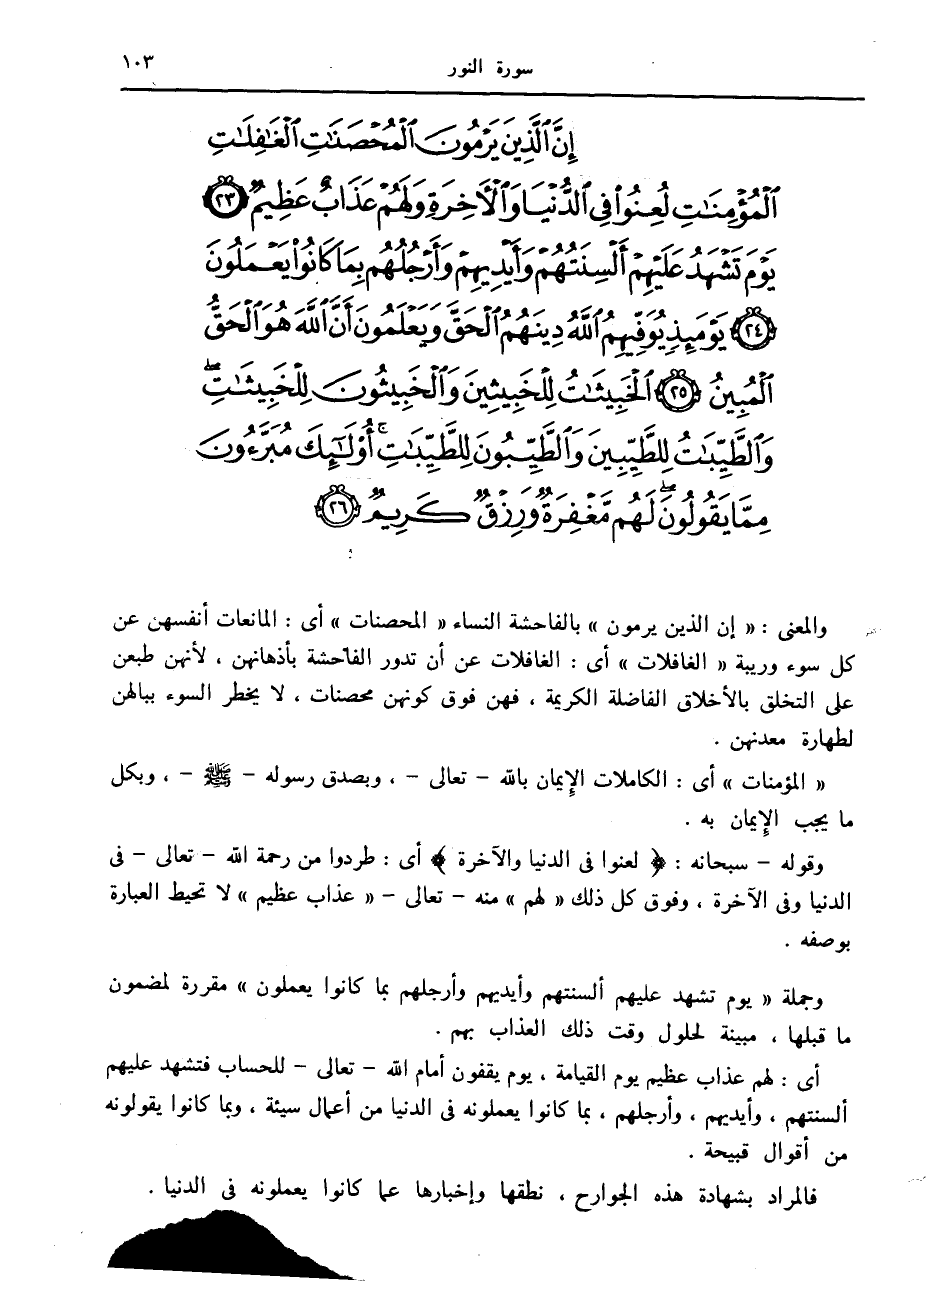 سورة النور ١٠٣
إِنَّ ٱلَّذِينَ يَرْمُونَ ٱلْمُحْصَنَٰتِ ٱلْغَٰفِلَٰتِ
ٱلْمُؤْمِنَٰتِ لُعِنُوا۟ فِى ٱلدُّنْيَا وَٱلْأَخِرَةِ وَلَهُمْ عَذَابٌ عَظِيمٌ ٢٣
يَوْمَ تَشْهَدُ عَلَيْهِمْ أَلْسِنَتُهُمْ وَأَيْدِيهِمْ وَأَرْجُلُهُم بِمَا كَانُوا۟ يَعْمَلُونَ
٢٤ يَوْمَئِذٍ يُوَفِّيهِمُ ٱللَّهُ دِينَهُمُ ٱلْحَقَّ وَيَعْلَمُونَ أَنَّ ٱللَّهَ هُوَ ٱلْحَقُّ
ٱلْمُبِينُ ٢٥ ٱلْخَبِيثَٰتُ لِلْخَبِيثِينَ وَٱلْخَبِيثُونَ لِلْخَبِيثَٰتِۖ
وَٱلطَّيِّبَٰتُ لِلطَّيِّبِينَ وَٱلطَّيِّبُونَ لِلطَّيِّبَٰتِۚ أُو۟لَٰٓئِكَ مُبَرَّءُونَ
مِمَّا يَقُولُونَۖ لَهُم مَّغْفِرَةٌ وَرِزْقٌ كَرِيمٌ ٢٦
والمعنى : « إن الذين يرمون » بالفاحشة النساء « المحصنات » أى : المانعات أنفسهن عن
كل سوء وريبة « الغافلات » أى : الغافلات عن أن تدور الفاحشة بأذهانهن ، لأنهن طبعن
على التخلق بالأخلاق الفاضلة الكريمة ، فهن فوق كونهن محصنات ، لا يخطر السوء ببالهن
لطهارة معدنهن .
« المؤمنات » أى : الكاملات الإيمان بالله – تعالى – ، وبصدق رسوله – ﷺ – ، وبكل
ما يجب الإيمان به .
وقوله – سبحانه : ﴿ لعنوا فى الدنيا والآخرة ﴾ أى : طردوا من رحمة الله – تعالى – فى
الدنيا وفى الآخرة ، وفوق كل ذلك « لهم » منه – تعالى – « عذاب عظيم » لا تحيط العبارة
بوصفه .
وجملة « يوم تشهد عليهم ألسنتهم وأيديهم وأرجلهم بما كانوا يعملون » مقررة لمضمون
ما قبلها ، مبينة لحلول وقت ذلك العذاب بهم .
أى : لهم عذاب عظيم يوم القيامة ، يوم يقفون أمام الله – تعالى – للحساب فتشهد عليهم
ألسنتهم ، وأيديهم ، وأرجلهم ، بما كانوا يعملونه فى الدنيا من أعمال سيئة ، وبما كانوا يقولونه
من أقوال قبيحة .
فالمراد بشهادة هذه الجوارح ، نطقها وإخبارها عما كانوا يعملونه فى الدنيا .